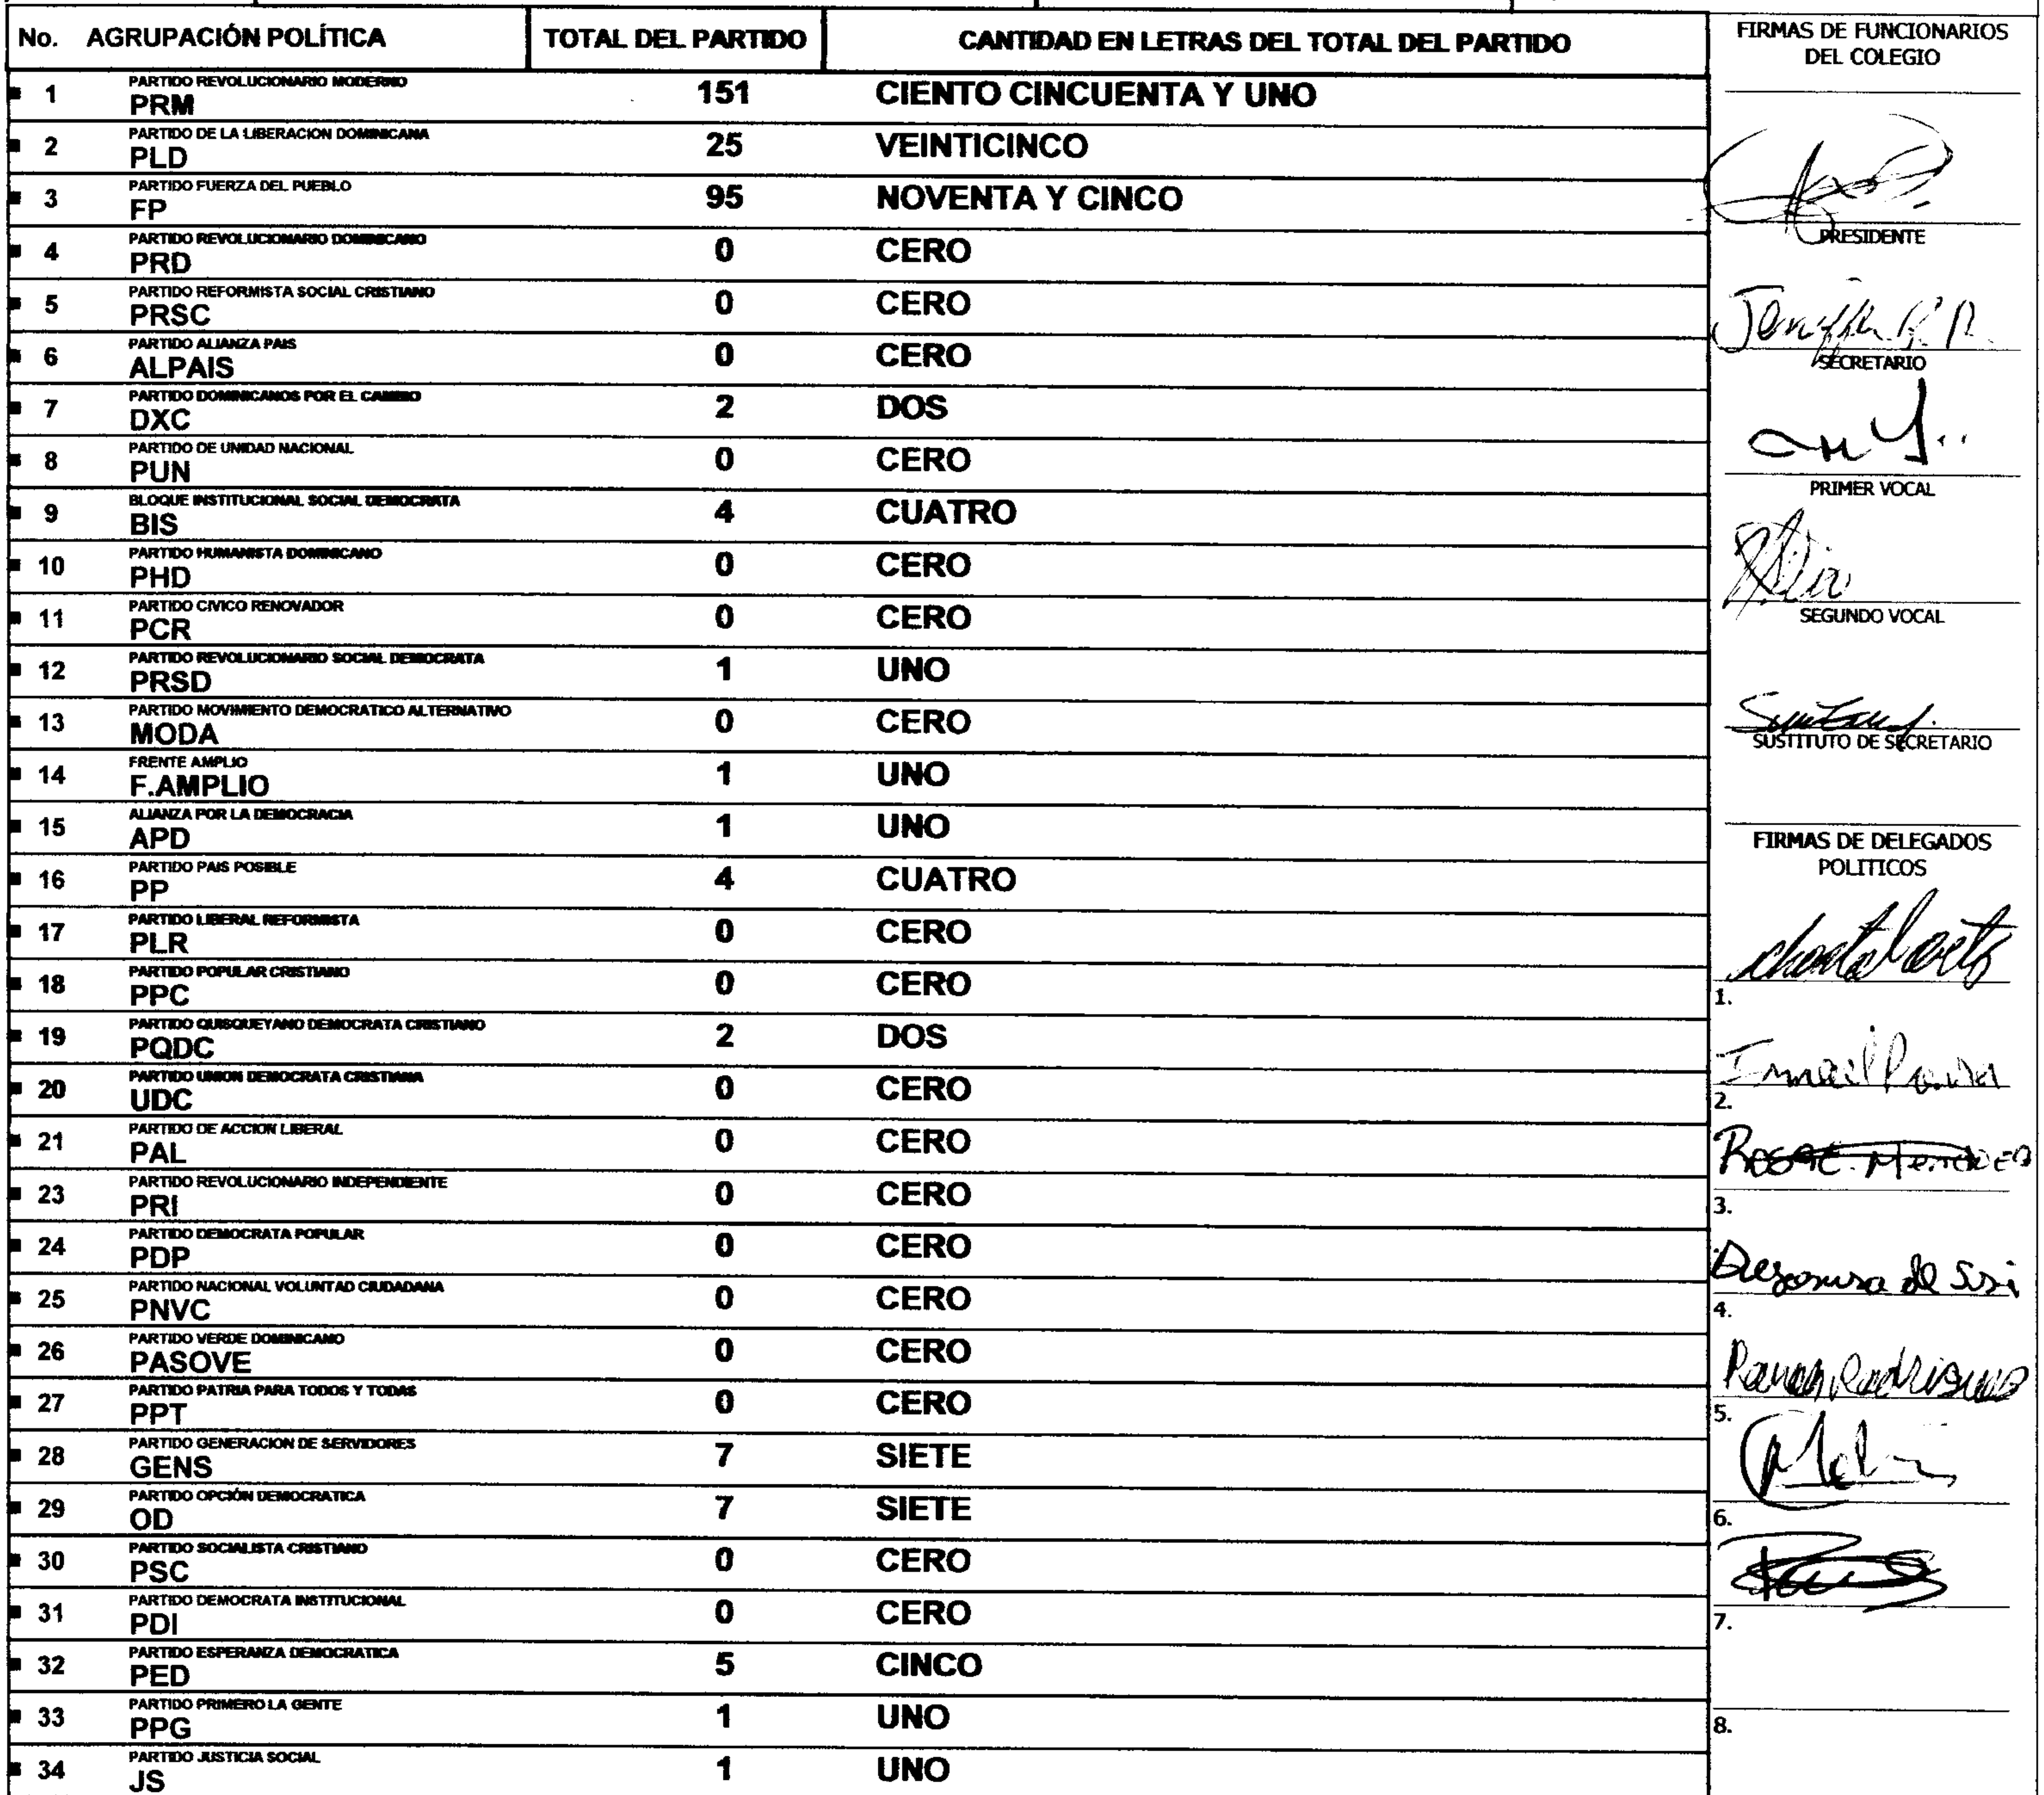 No. AGRUPACIÓN POLÍTICA TOTAL DEL PARTIDO CANTIDAD EN LETRAS DEL TOTAL DEL PARTIDO
PARTIDO REVOLUCIONARIO MODERNO
1 PRM 151 CIENTO CINCUENTA Y UNO
PARTIDO DE LA LIBERACION DOMINICANA
2 PLD 25 VEINTICINCO
PARTIDO FUERZA DEL PUEBLO
3 FP 95 NOVENTA Y CINCO
PARTIDO REVOLUCIONARIO DOMINICANO
4 PRD 0 CERO
PARTIDO REFORMISTA SOCIAL CRISTIANO
5 PRSC 0 CERO
PARTIDO ALIANZA PAIS
6 ALPAIS 0 CERO
PARTIDO DOMINICANOS POR EL CAMBIO
7 DXC 2 DOS
PARTIDO DE UNIDAD NACIONAL
8 PUN 0 CERO
BLOQUE INSTITUCIONAL SOCIAL DEMOCRATA
9 BIS 4 CUATRO
PARTIDO HUMANISTA DOMINICANO
10 PHD 0 CERO
PARTIDO CIVICO RENOVADOR
11 PCR 0 CERO
PARTIDO REVOLUCIONARIO SOCIAL DEMOCRATA
12 PRSD 1 UNO
PARTIDO MOVIMIENTO DEMOCRATICO ALTERNATIVO
13 MODA 0 CERO
FRENTE AMPLIO
14 F.AMPLIO 1 UNO
ALIANZA POR LA DEMOCRACIA
15 APD 1 UNO
PARTIDO PAIS POSIBLE
16 PP 4 CUATRO
PARTIDO LIBERAL REFORMISTA
17 PLR 0 CERO
PARTIDO POPULAR CRISTIANO
18 PPC 0 CERO
PARTIDO QUISQUEYANO DEMOCRATA CRISTIANO
19 PQDC 2 DOS
PARTIDO UNION DEMOCRATA CRISTIANA
20 UDC 0 CERO
PARTIDO DE ACCION LIBERAL
21 PAL 0 CERO
PARTIDO REVOLUCIONARIO INDEPENDIENTE
23 PRI 0 CERO
PARTIDO DEMOCRATA POPULAR
24 PDP 0 CERO
PARTIDO NACIONAL VOLUNTAD CIUDADANA
25 PNVC 0 CERO
PARTIDO VERDE DOMINICANO
26 PASOVE 0 CERO
PARTIDO PATRIA PARA TODOS Y TODAS
27 PPT 0 CERO
PARTIDO GENERACION DE SERVIDORES
28 GENS 7 SIETE
PARTIDO OPCIÓN DEMOCRATICA
29 OD 7 SIETE
PARTIDO SOCIALISTA CRISTIANO
30 PSC 0 CERO
PARTIDO DEMOCRATA INSTITUCIONAL
31 PDI 0 CERO
PARTIDO ESPERANZA DEMOCRATICA
32 PED 5 CINCO
PARTIDO PRIMERO LA GENTE
33 PPG 1 UNO
PARTIDO JUSTICIA SOCIAL
34 JS 1 UNO
FIRMAS DE FUNCIONARIOS
DEL COLEGIO
PRESIDENTE
SECRETARIO
PRIMER VOCAL
SEGUNDO VOCAL
SUSTITUTO DE SECRETARIO
FIRMAS DE DELEGADOS
POLITICOS
1.
2.
3.
4.
5.
6.
7.
8.